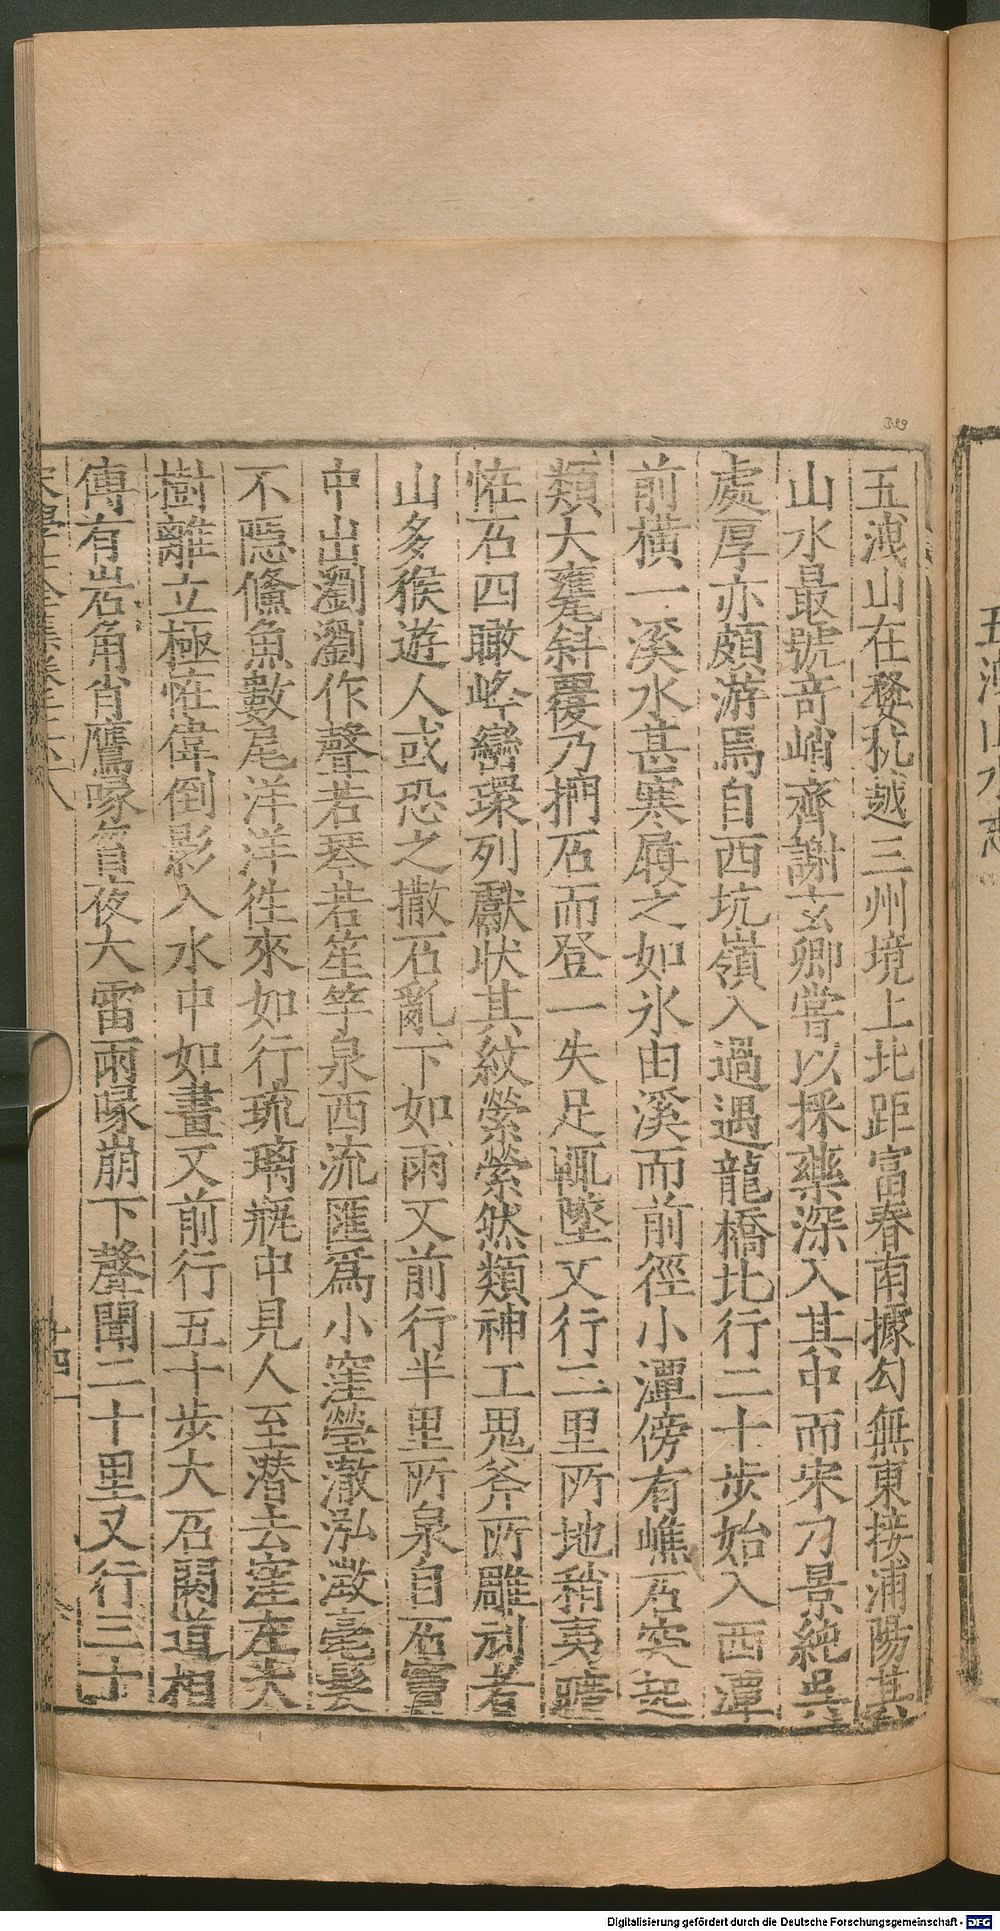 五洩山水志
399
五洩山在婺杭越三州境上北距富春南據勾無東接浦陽其
山水最號奇峭齊謝玄卿嘗以採藥深入其中而宋刁景純吳
處厚亦頗游焉自西坑嶺入過遇龍橋北行二十步始入西潭
前橫一溪水甚寒尋之如氷由溪而前徑小潭傍有嶕石突起
類大甕斜覆乃捫石而登一失足輒墜又行二里所地稍夷曠
恠石四瞰峰巒環列獻状其紋縈縈然類神工鬼斧所雕刻者
山多猴遊人或恐之撒石亂下如雨又前行半里所泉自石竇
中出瀏瀏作聲若琴若笙竽泉西流匯爲小窪瑩澈泓澂毫髮
不隱鯈魚數尾洋洋徃來如行琉璃瓶中見人至潛去窪左大
樹離立極恠偉倒影入水中如畫又前行五十步大石闌道相
傳有岩角肖鷹喙昔夜大雷雨喙崩下聲聞二十里又行三十
宋學士全集卷之二十八
十四
Digitalisierung gefördert durch die Deutsche Forschungsgemeinschaft - DFG